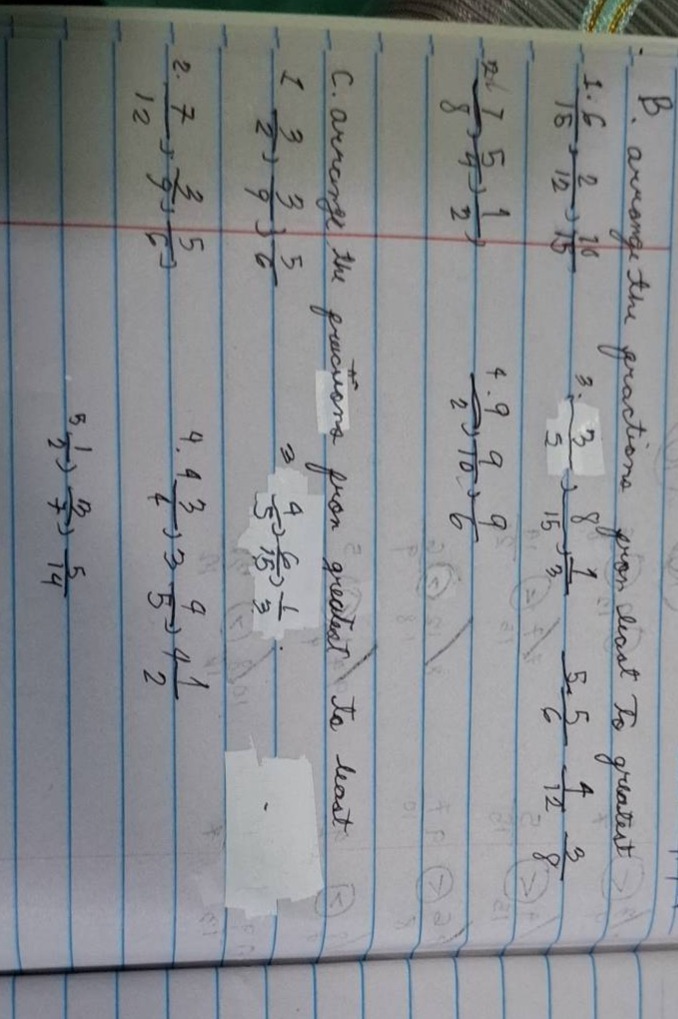 B. arrange the practions pron least to greatest
1. 6/15, 2/12, 10/15 3. 3/5, 8/15, 1/3 5. 5/6 4/12 3/8
2. 7/8, 5/4, 1/2, 4. 9/2, 9/10, 9/6
C. arrange the practions pron greatest to least
1 3/2, 3/9, 5/6 3 4/5, 6/15, 1/3.
2. 7/12, 3/9, 5/6, 4. 4 3/4, 3 9/5, 4 1/2
5 1/2, 3/7, 5/14